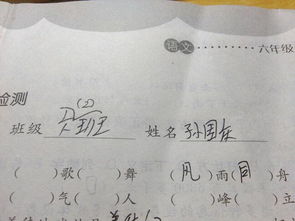 语文 ········ 六年级
检测
(2)
班级 六班 姓名 孙国东
( )歌( )舞 (风)雨(同)舟
( )气( )人 ( )峰( )立